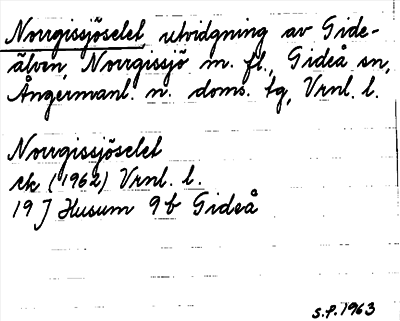 Norrgissjöselet utvidgning av Gide-
älven, Norrgissjö m. fl., Gideå sn,
Ångermanl. n. doms. tg, Vrnl. l.
Norrgissjöselet
ek (1962) Vrnl. l.
19 J Husum 9 b Gideå
S.P. 1963